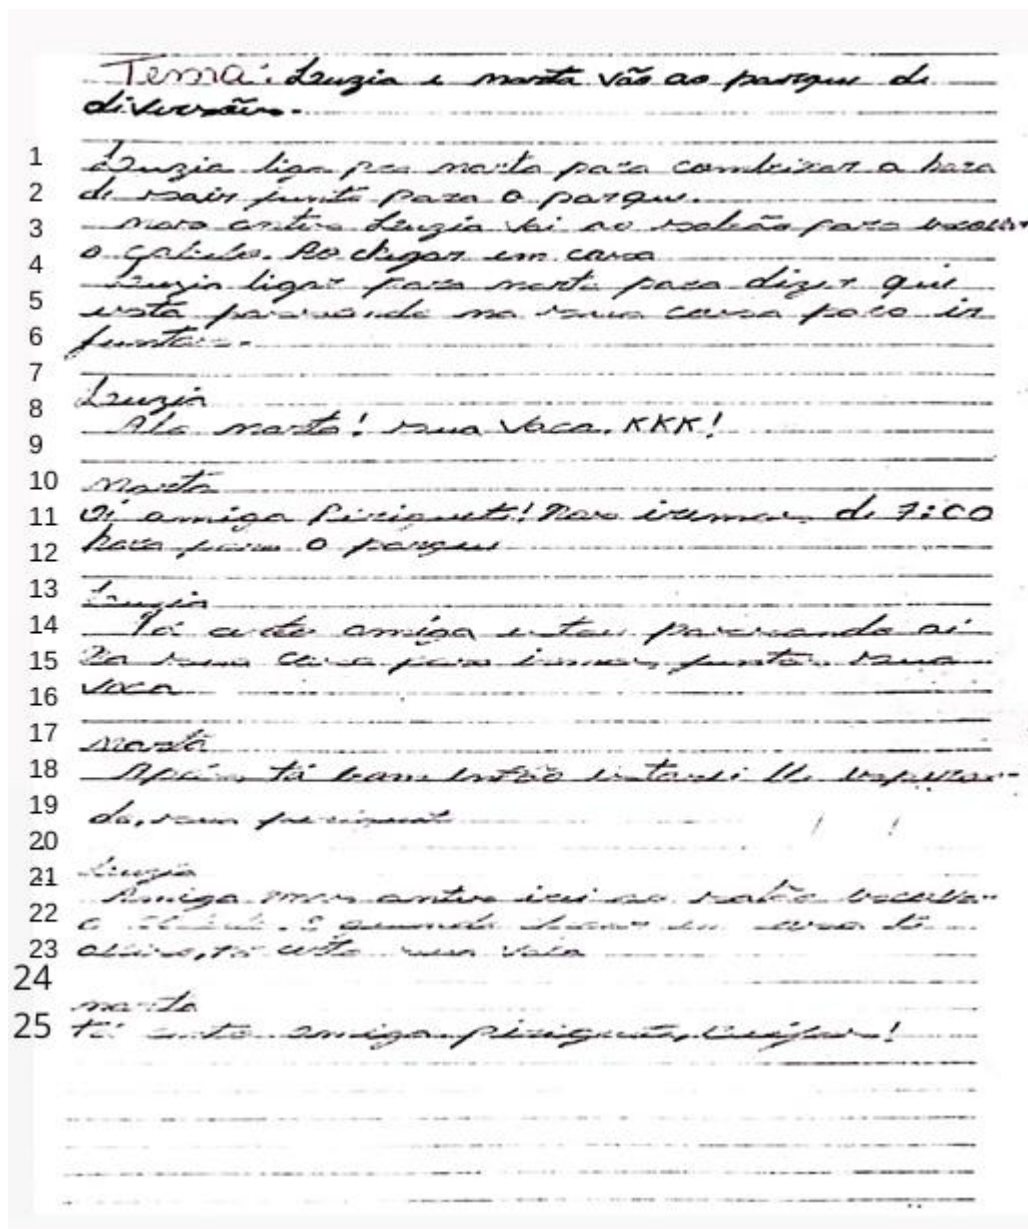 Tema: Luzia e marta vão ao parque de
diversões.
1 Luzia liga pra marta para combrizar a hora
2 de sair junto para o parque.
3 mars antes Luzia vai ao salão para escovar
4 o cabelo. Ao chegar em casa
5 Luzia ligar para marta para dizer que
6 está passando na sua casa para ir
7 juntas.
8 Luzia
9 Alo marta! sua vaca. KKK!
10 Marta
11 Oi amiga Piriguete! Nos iremos de 7:00
12 hora para o parque
13 Luzia
14 Tá certo amiga estou passando ai
15 na sua casa para irmos juntas sua
16 vaca
17 Marta
18 tá bom então estarei te esperan-
19 do, sua piriguete
20
21 Luzia
22 Amiga mas antes irei ao salão escovar
23 o cabelo. E quando chegar em casa te
24 tá certo sua vaca
marta
25 tá certo amiga piriguete,